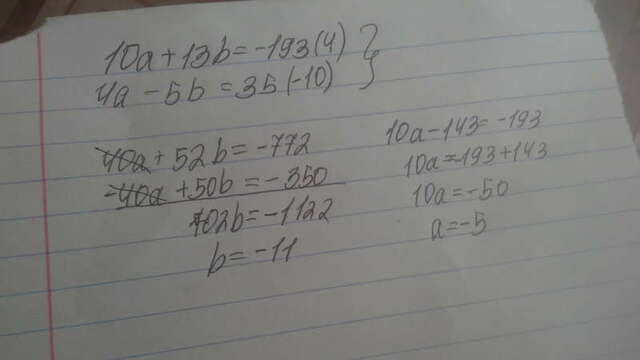 10a + 13b = -193 (4) }
4a - 5b = 35 (-10)
40a + 52b = -772
-40a + 50b = -350
102b = -1122
b = -11
10a - 143 = -193
10a = -193 + 143
10a = -50
a = -5